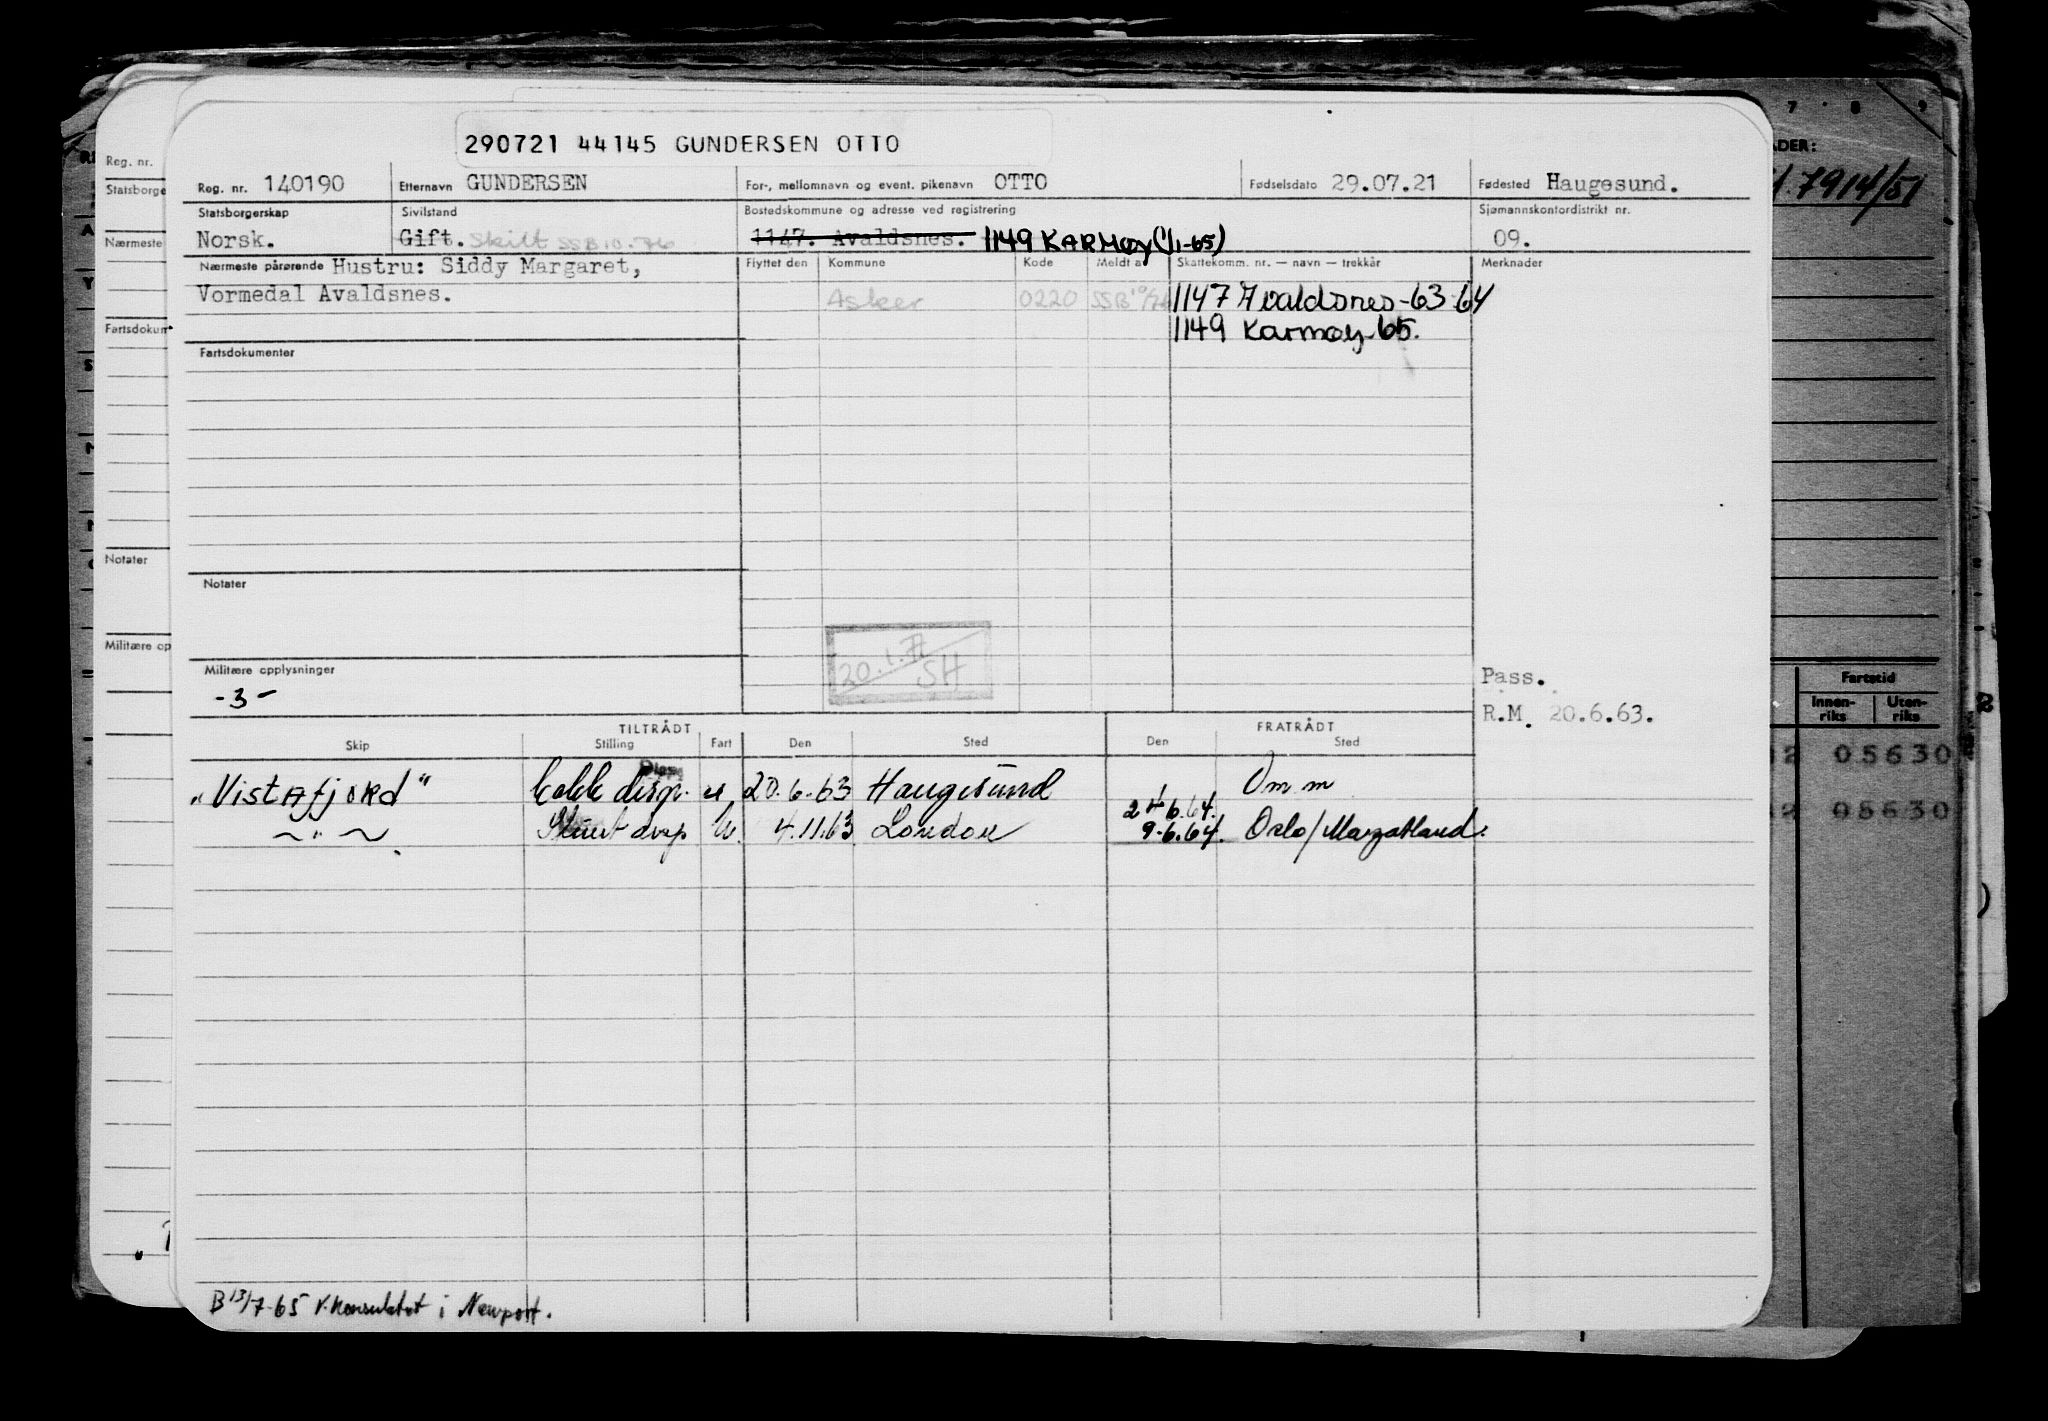 290721 44145 GUNDERSEN OTTO
Reg. nr. 140190 Etternavn GUNDERSEN For-, mellomnavn og event. pikenavn OTTO Fødselsdato 29.07.21 Fødested Haugesund.
Statsborgerskap Sivilstand Bostedskommune og adresse ved registrering Sjømannskontordistrikt nr.
Norsk. Gift. Skilt SSB 10.76 1147. Avaldsnes. 1149 KARMØY (1/1-65) 09.
Nærmeste pårørende Hustru: Siddy Margaret, Flyttet den Kommune Kode Meldt av Skattekomm. nr. — navn — trekkår Merknader
Vormedal Avaldsnes. Asker 0220 SSB 10/76 1147 Avaldsnes-63-64
1149 Karmøy-65.
Fartsdokumenter
Notater
20.1.77
SH
Militære opplysninger
-3-
Pass.
R.M. 20.6.63.
TILTRÅDT FRATRÅDT
Skip Stilling Fart Den Sted Den Sted
"Vistafjord" kokk disp. u 20.6.63 Haugesund Om m
24.6.64.
— " — Stuert disp U. 4.11.63 London 9.6.64. Oslo/
B 13/7-65 V. Konsulatet i Newport.
Reg. nr.
Statsborge
Nærmeste
Fartsdokum
Notater
Militære op
7 8 9
ADER:
7914/51
Fartstid
Innen-
riks
Uten-
riks
2 05630
2 05630